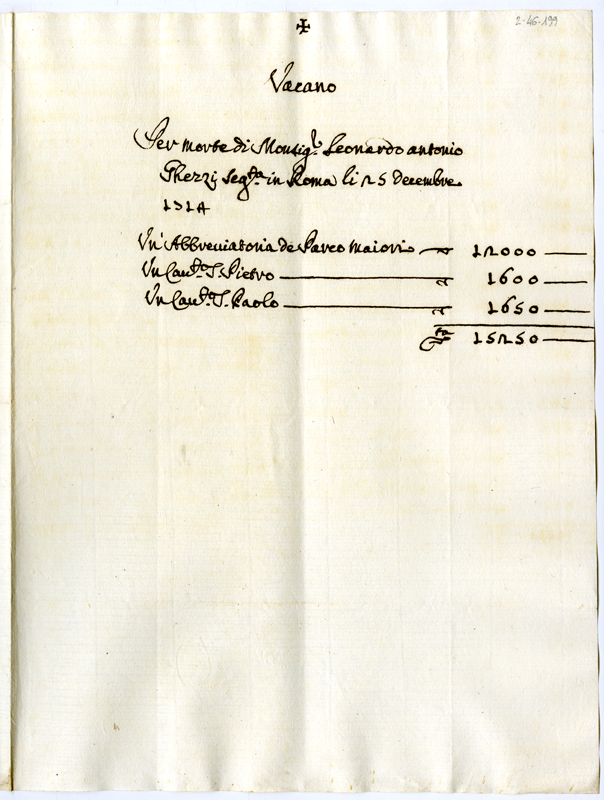 ✠
2-46-199
Vacano
Per morte di Monsig.r Leonardo antonio
Ghezzi seg.ta in Roma li 25 Decembre
1714
Un' Abbreviatoria de Parco maiori 12000
Un Cau.to S. Pietro 1600
Un Cau.to S. Paolo 1650
15250